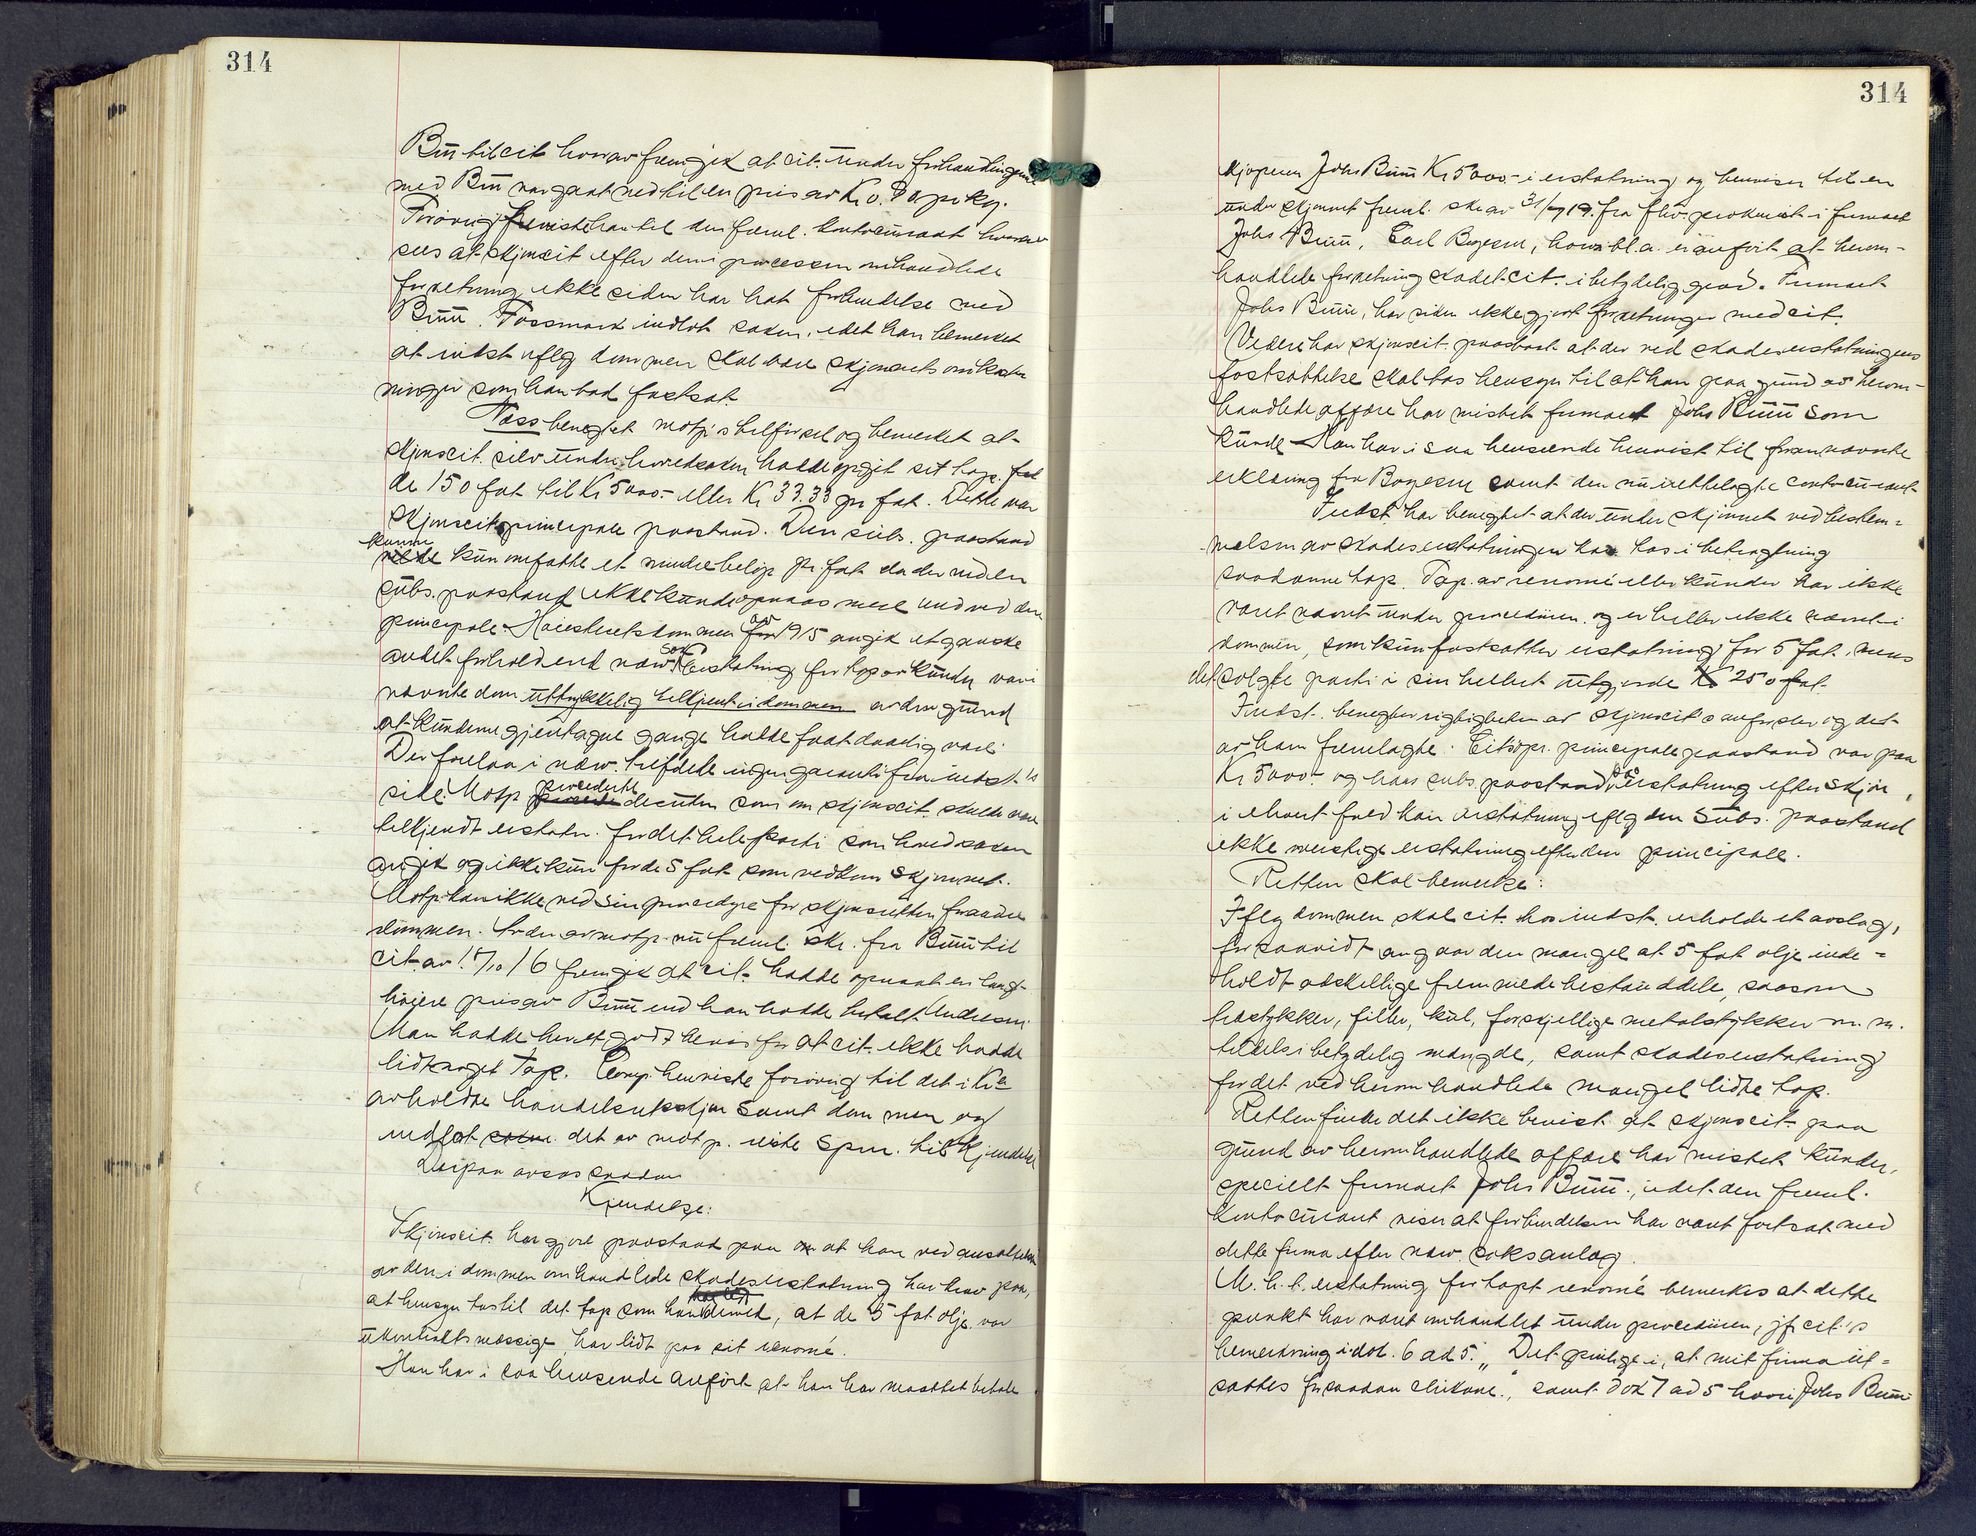 314
Buu til cit hvorav fremgik at cit. under forhandlingerne
med Buu var gaat ned til en pris av Kr 0.80 pr kg.
Forøvrig henviste han til den freml. kontocurant hvorav
sees at skjønscit efter den i processen omhandlede
forretning ikke siden har hat forbindelse med
Buu. Fossmark indlot saken, idet han bemerket
at indst iflg dommen skal bære skjønnets omkost
ninger som han bad fastsat.
Fass benegtet motp's tilførsel og bemerket at
skjønscit. selv under hovedsaken hadde opgit sit tap. for
de 150 fat til Kr 5000- eller Kr 33.33 pr fat. Dette var
skjønscit principale paastand. Den subs. paastand
kunne kun omfatte et mindre beløp pr. fat da der ved en
subs. paastand ikke kunde opnaaes mere end ved den
principale. Høiesteretsdommen av 1915 angik et ganske
andet forhold end nærv. sak. Erstatning for tap av kunder var i
nævnte dom uttrykkelig tilkjent i dommen av den grund
at kunderne gjentagne gange hadde faat daarlig vare.
Der forelaa i nærv. tilfælde ingen garanti fra indst.'s
side. Motp procederte desuten som om skjønscit. skulde være
tilkjendt erstatn. for det hele parti som hovedsaken
angik og ikke kun for de 5 fat som vedkom skjønnet.
Motp. kan ikke ved sin procedyre for skjønsretten forandre
dommen. Av den av motp. nu freml. skr. fra Buu til
cit. av 17/10 16 fremgik at cit. hadde opnaat en langt
høiere pris av Buu end han hadde betalt Andresen.
Man hadde hervet godt bevis for at cit. ikke hadde
lidt noget Tap. Comp. henviste forøvrig til det i Kr.a
avholdte handelsretsskjøn samt dommen og
indlot det av motp. reiste spm. til kjendelse
Derpaa avsaas saadan
Kjendelse:
Skjønscit. har gjort paastand paa at han ved ansættelsen
av den i dommen omhandlede skadeserstatning har krav paa,
at hensyn tas til det tap som han har lidt derved, at de 5 fat olje var
ukontraktsmæssige, har lidt paa sit renomé.
Han har i saa henseende anført at han har maattet betale
314
kjøperen Johs Buuu Kr 5000.- i erstatning og henviser til en
under skjønnet freml. skr av 31/7 19. fra fhv. prokurist i firmaet
Johs Buuu, Carl Bøgesen, hvori bl.a. er anført at herom-
handlede forretning skadet cit. i betydelig grad. Firmaet
Johs Buuu, har siden ikke gjort forretninger med cit.
Videre har skjønscit. paastaat at der ved skadeserstatningens
fastsættelse skal tas hensyn til at han paa grund av herom-
handlede affære har mistet firmaet Johs Buuu som
kunde. Han har i saa henseende henvist til forannævnte
erklæring fra Bøgesen samt den nu irettelagte contocurant.
Indst. har benegtet at der under skjønnet ved bestem=
melsen av skadeserstatningen kan tas i betragtning
saadanne tap. Tap. av renomé eller kunder har ikke
været nævnt under proceduren og er heller ikke nævnt i
dommen, som kun fastsætter erstatning for 5 fat, mens
det solgte parti i sin helhet utgjorde 250 fat.
Indst. benegter rigtigheten av skjønscit's anførsler og det
av ham fremlagte. Cits opr. principale paastand var paa
Kr 5000.- og hans subs. paastand paa erstatning efter skjøn,
i ethvert fald kan erstatning iflg den subs. paastand
ikke overstige erstatning efter den principale.
Retten skal bemerke:
Iflg dommen skal cit. hos indst. erholde et avslag,
forsaavidt angaar den mangel at 5 fat olje inde=
holdt adskillige fremmede bestanddele, saasom
træstykker, filler, kul, forskjellige metalstykker m. m.
tildels i betydelig mængde, samt skadeserstatning
for det ved heromhandlede mangel lidte tap.
Retten finder det ikke bevist at skjønscit. paa
grund av heromhandlede affære har mistet kunder,
specielt firmaet Johs Buuu., idet den freml.
kontocurant viser at forbindelsen har været fortsat med
dette firma efter nærv. saksanlæg.
M. h. t. erstatning for tapt renomé bemerkes at dette
punkt har været omhandlet under proceduren, jfr cit.'s
bemerkning i dok. 6 ad 5. „Det pinlige i, at mit firma ut=
sættes for saadan chikane.", samt dok 7 ad 5 hvori Johs Buuu